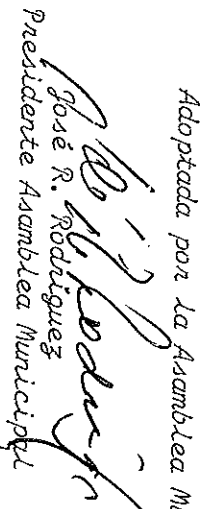 Adoptada por la Asamblea Mu
José R. Rodríguez
Presidente Asamblea Municipal